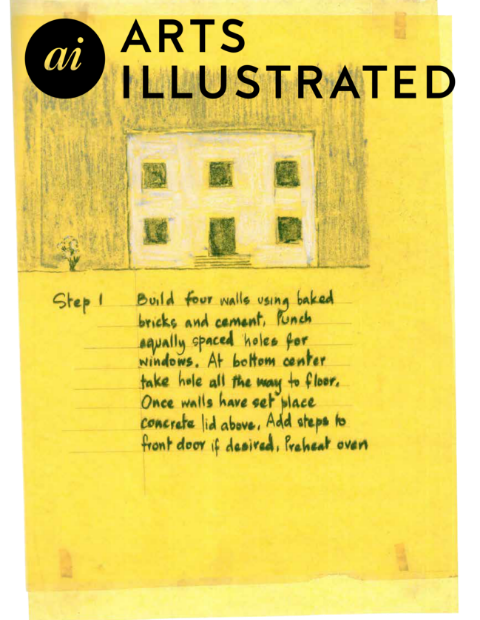 ai
ARTS
ILLUSTRATED
Step 1 Build four walls using baked
bricks and cement. Punch
equally spaced holes for
windows. At bottom center
take hole all the way to floor.
Once walls have set place
concrete lid above. Add steps to
front door if desired. Preheat oven